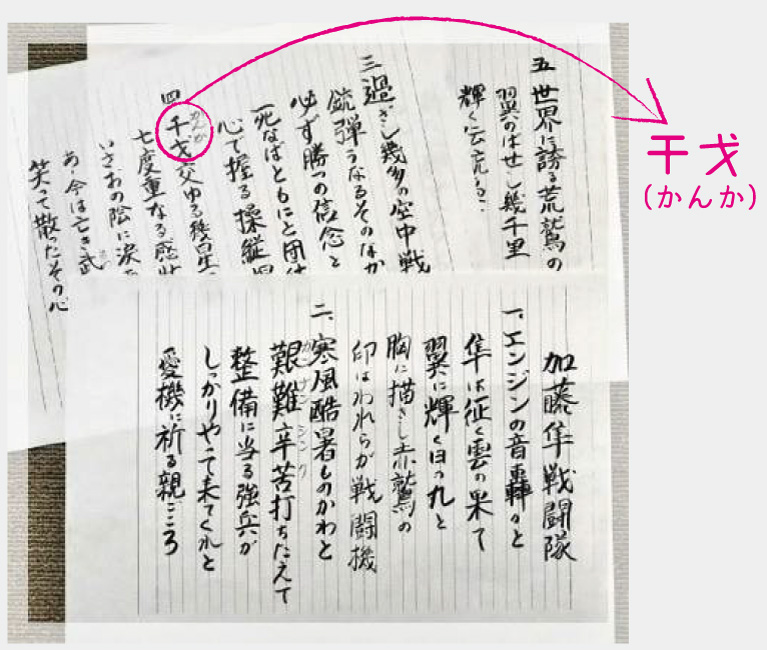 干戈
(かんか)
五 世界に誇る荒鷲の
翼のばせし幾千里
輝く伝
三 過ぎし幾多の空中戦
銃弾うなるそのなか
必ず勝つの信念と
死なばともにと団
心で握る操縦
四 干戈交ゆる幾星
かんか
七度重なる感状
いさおの陰に涙
あゝ今は亡き武
笑って散ったその心
加藤隼戦闘隊
一、エンジンの音轟々と
隼は征く雲の果て
翼に輝く日の丸と
胸に描きし赤鷲の
印はわれらが戦闘機
二、寒風酷暑ものかわと
艱難辛苦打ちたえて
カンナンシンク
整備に当る強兵が
しっかりやって来てくれと
愛機に祈る親ごころ